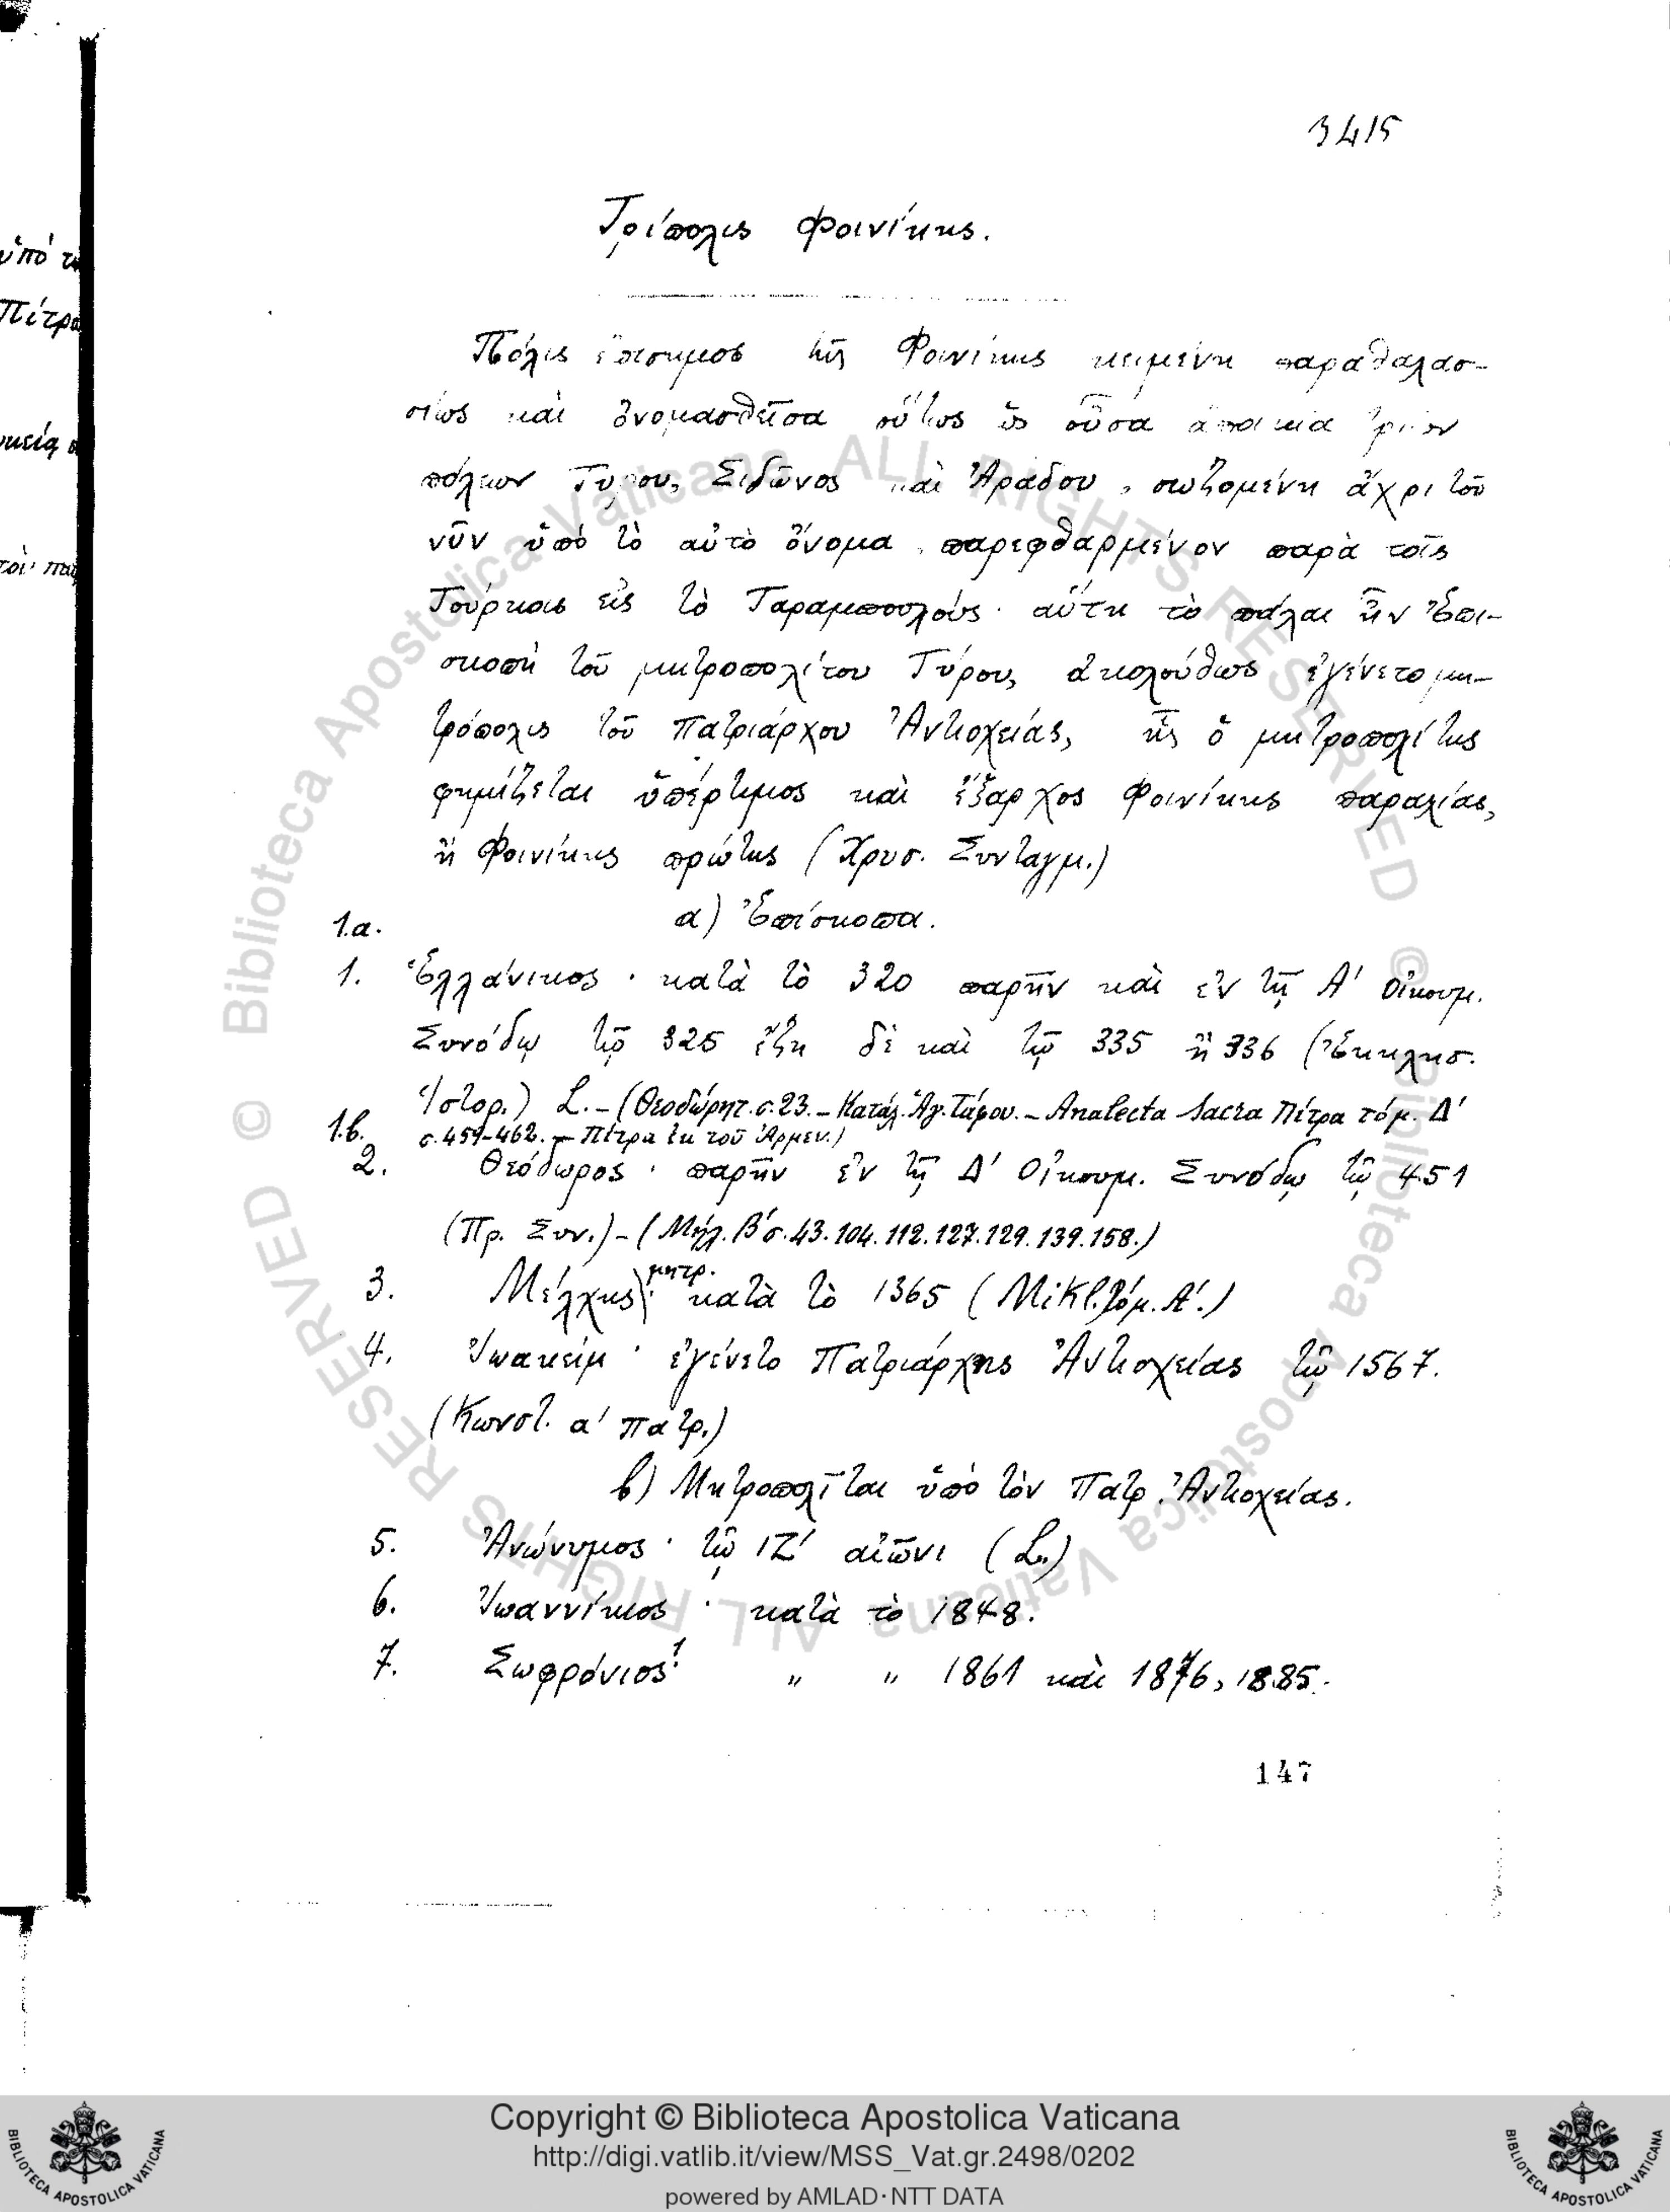 3415
Τρίπολις Φοινίκης.
ὑπὸ τ
Πέτρα
Πόλις ἐπίσημος τῆς Φοινίκης κειμένη παραθαλασ-
σίως καὶ ὀνομασθεῖσα οὕτως ὡς οὖσα ἀποικία τριῶν
πόλεων Τύρου, Σιδῶνος καὶ Ἀράδου, σωζομένη ἄχρι τοῦ
νῦν ὑπὸ τὸ αὐτὸ ὄνομα, παρεφθαρμένον παρὰ τοῖς
Τούρκοις εἰς τὸ Ταραμπουλούς· αὕτη τὸ πάλαι ἦν Ἐπι-
σκοπὴ τοῦ μητροπολίτου Τύρου, ἀκολούθως ἐγένετο μη-
τρόπολις τοῦ Πατριάρχου Ἀντιοχείας, ἧς ὁ μητροπολίτης
φημίζεται ὑπέρτιμος καὶ ἔξαρχος Φοινίκης παραλίας,
ἢ Φοινίκης πρώτης (Χρυσ. Συνταγμ.)
1.α. α) Ἐπίσκοποι.
1. Ἑλλάνικος· κατὰ τὸ 320 παρῆν καὶ ἐν τῇ Α' Οἰκουμ.
Συνόδῳ τῷ 325 ἔζη δὲ καὶ τῷ 335 ἢ 336 (Ἐκκλησ.
Ἱστορ.) L. – (Θεοδώρητ. σ. 23. – Κατάλ. Ἁγ. Τάφου. – Analecta Sacra Πίτρα τόμ. Δ'
1.β. σ. 457-462. – Πίτρα ἐκ τοῦ Ἀρμεν.)
2. Θεόδωρος· παρῆν ἐν τῇ Δ' Οἰκουμ. Συνόδῳ τῷ 451
(Πρ. Συν.) – (Μήλ. Β' σ. 43. 104. 112. 127. 129. 139. 158.)
3. Μέλχης μητρ. · κατὰ τὸ 1365 (Mikl. Τόμ. Α'.)
4. Ἰωακεὶμ· ἐγένετο Πατριάρχης Ἀντιοχείας τῷ 1567.
(Κωνστ. α' Πατρ.)
β) Μητροπολῖται ὑπὸ τὸν Πατρ. Ἀντιοχείας.
5. Ἀνώνυμος· τῷ ΙΖ' αἰῶνι (L.)
6. Ἰωαννίκιος· κατὰ τὸ 1848.
7. Σωφρόνιος¹· „ „ 1861 καὶ 1876, 1885.
147
© Biblioteca Apostolica Vaticana ALL RIGHTS RESERVED © Biblioteca Apostolica Vaticana ALL RIGHTS RESERVED
BIBLIOTECA APOSTOLICA VATICANA
Copyright © Biblioteca Apostolica Vaticana
http://digi.vatlib.it/view/MSS_Vat.gr.2498/0202
powered by AMLAD·NTT DATA
BIBLIOTECA APOSTOLICA VATICANA